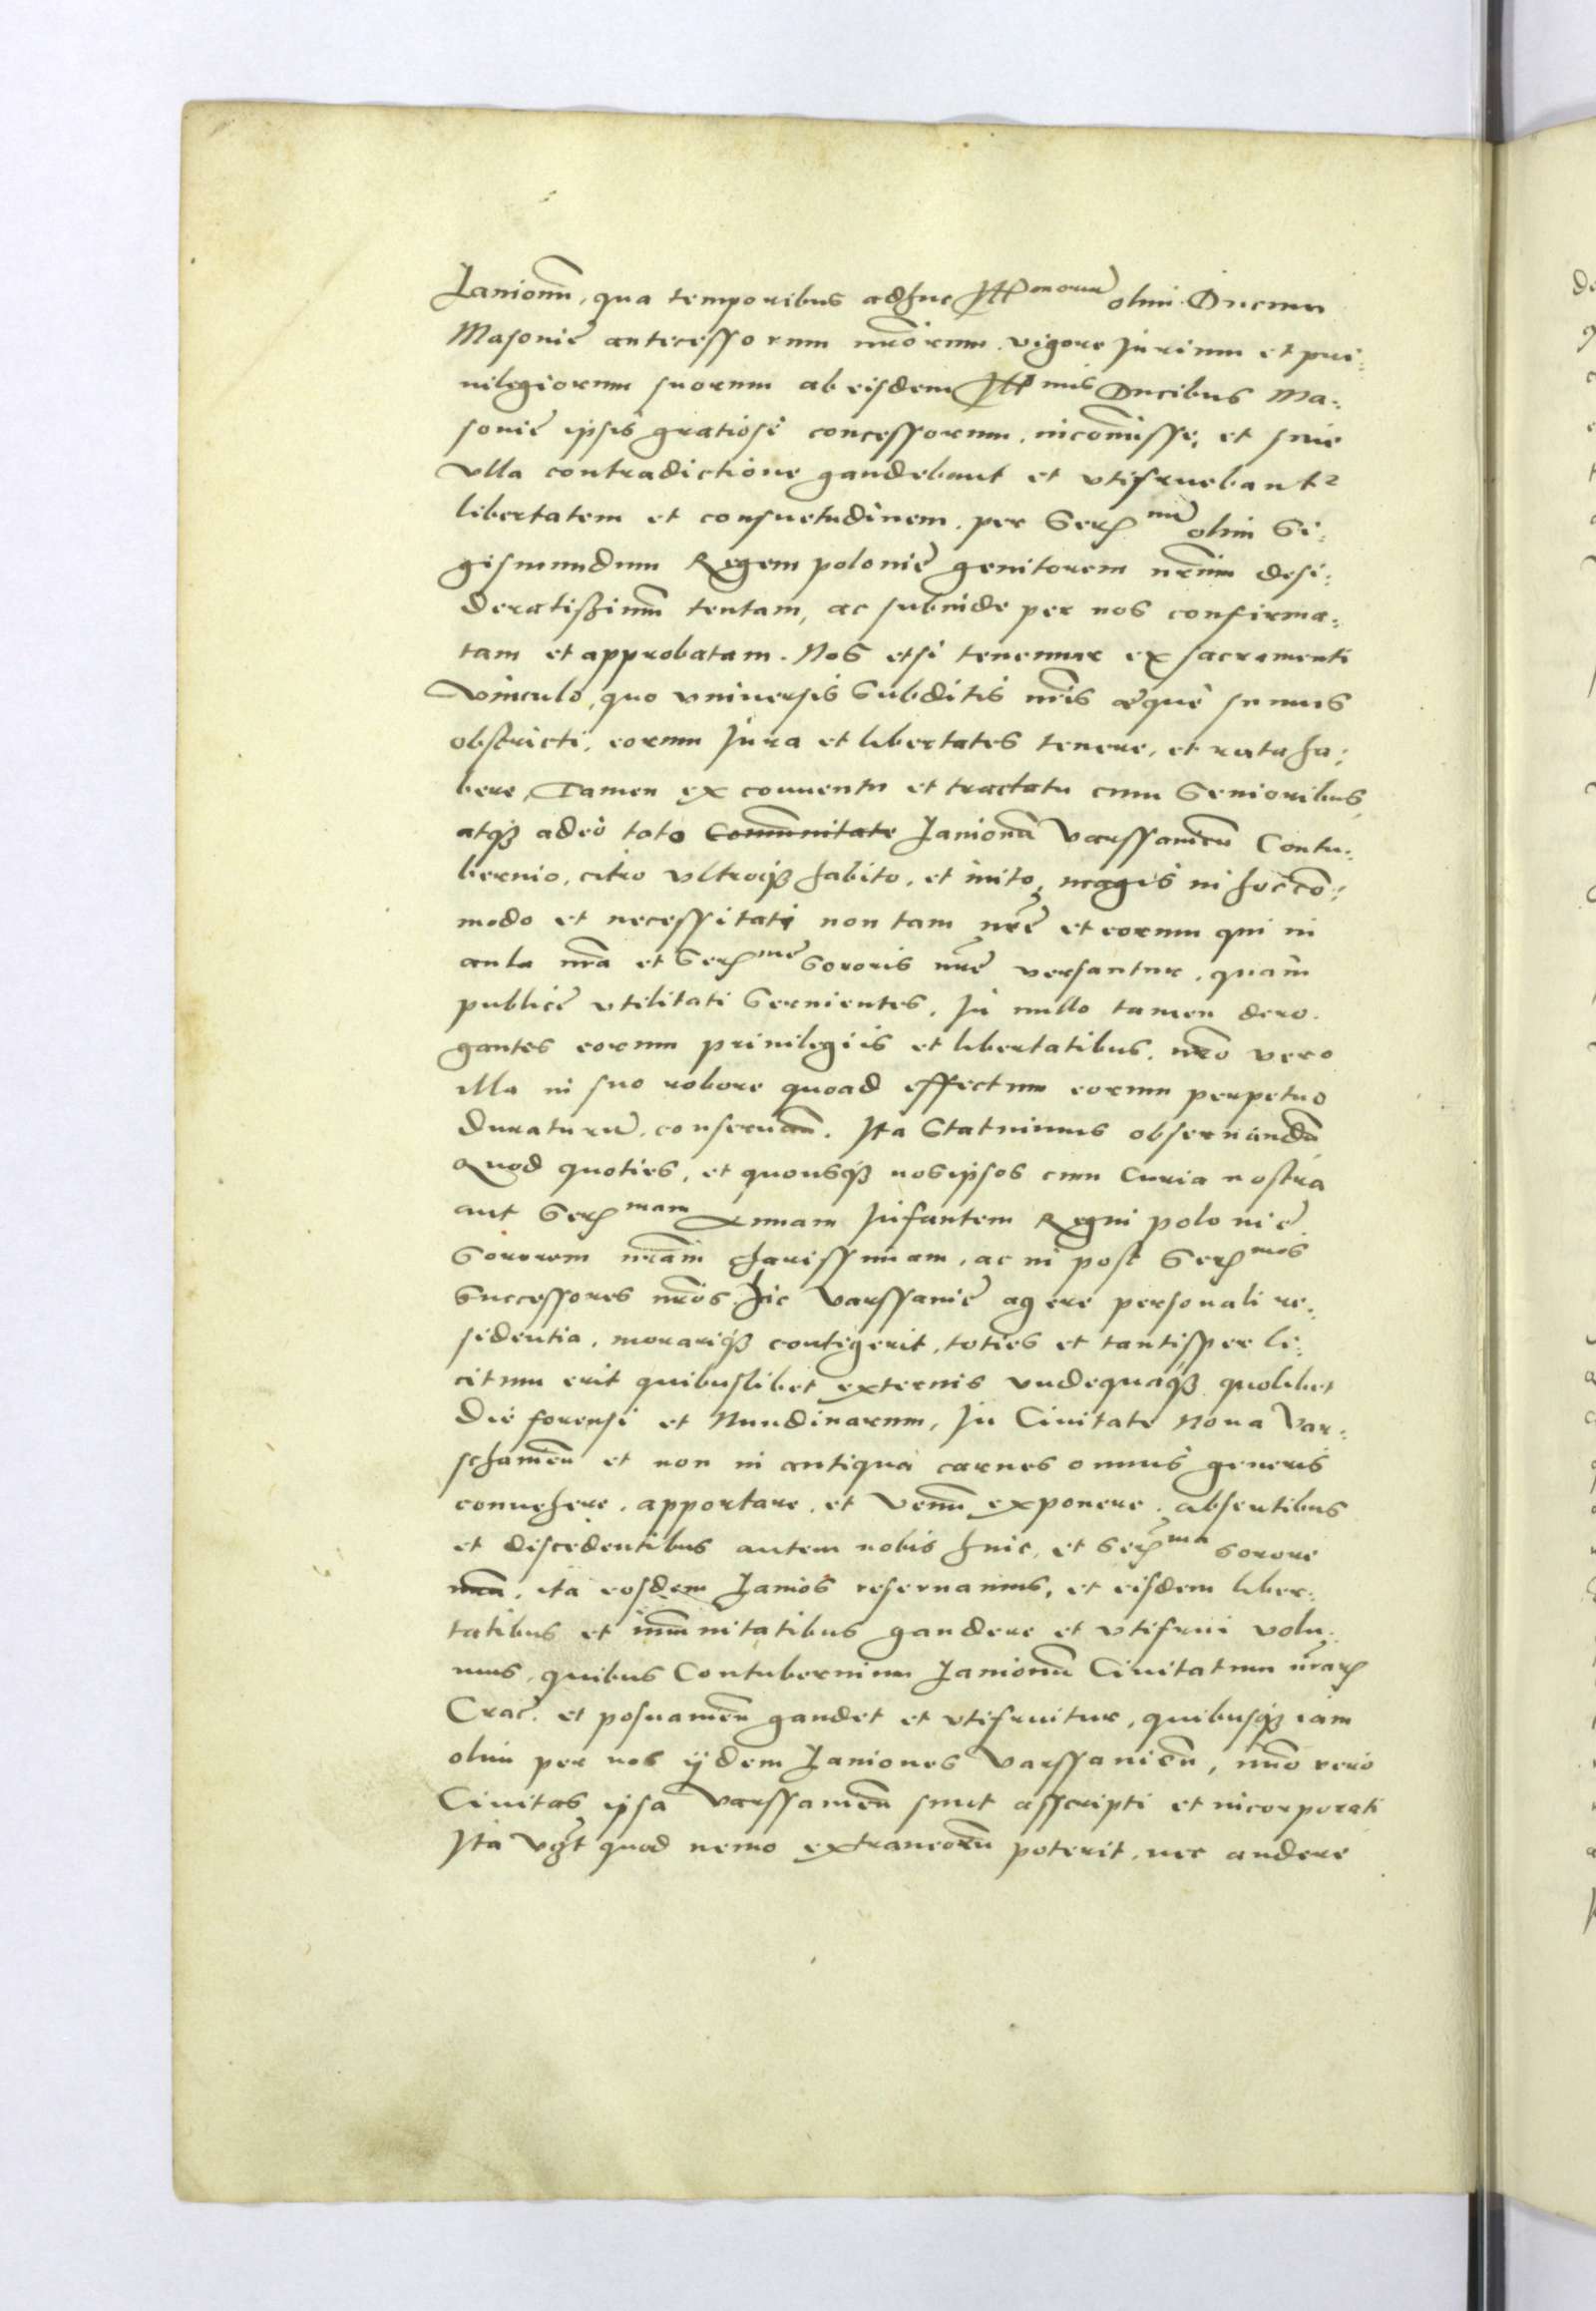 Lanionũ, qua temporibus adhuc Illmorum olim Ducum
Masonię antecessorum nr̃orum. vigore Jurium et pri:
uilegiorum suorum ab eisdem Illmis Ducibus Ma:
soniæ ipsis gratiosè concessorum, inconcussè, et sine
vlla contradictione gaudebant et vtifruebantr
libertatem et consuetudinem. per Sermũ olim Si:
gismundum Regem polonię genitorem nr̃um desi:
deratißimũ tentam, ac subinde per nos confirma:
tam et approbatam. Nos etsi tenemur ex sacramenti
vinculo, quo vniuersis Subditis nr̃is æquè sumus
obstricti, eorum Jura et libertates tenere, et rata ha:
bere, Tamen ex conuentu et tractatu cum Senioribus,
atq₃ adeò toto Com̃unitate Lanionũ Varssauień Contu:
bernio, citro vltroq₃ habito, et inito, magis in hoc cõ:
modo et necessitati non tam nr̃ę et eorum qui in
aula nr̃a et Sermę Sororis nr̃ę versantur, quàm
publicę vtilitati Seruientes, In nullo tamen dero.
gantes eorum priuilegiis et libertatibus. imò vero
illa in suo robore quoad effectum eorum perpetuo
duraturũ. conseruań. Ita Statuimus obseruandũ
Quod quoties, et quousq₃ nosipsos cum Curia nostra
aut Sermam Annam Infantem Regni polonię
Sororem nr̃am charissimam, ac in post Sermos
Successores nr̃os hic Varssauię agere personali re:
sidentia, morariq₃ contigerit, toties et tantisper li:
citum erit quibuslibet externis vndequaq₃ quolibet
die forensi et Nundinarum, In Ciuitate Noua Var:
schauień et non in antiqua carnes omnis generis
conuehere, apportare, et Venũ exponere. absentibus
et discedentibus autem nobis hinc, et Serma Sorore
nr̃a, ita eosdem Lanios reseruamus, et eisdem liber:
tatibus et im̃unitatibus gaudere et vtifrui volu:
mus, quibus Contubernium Lanionũ Ciuitatum nr̃aR
Crac. et posnanień gaudet et vtifruitur, quibusq₃ iam
olim per nos ijdem Laniones Varssauień, imò verò
Ciuitas ipsa Varssauień sunt asscripti et incorporati
Ita vt quod nemo extraneorũ poterit, nec audere